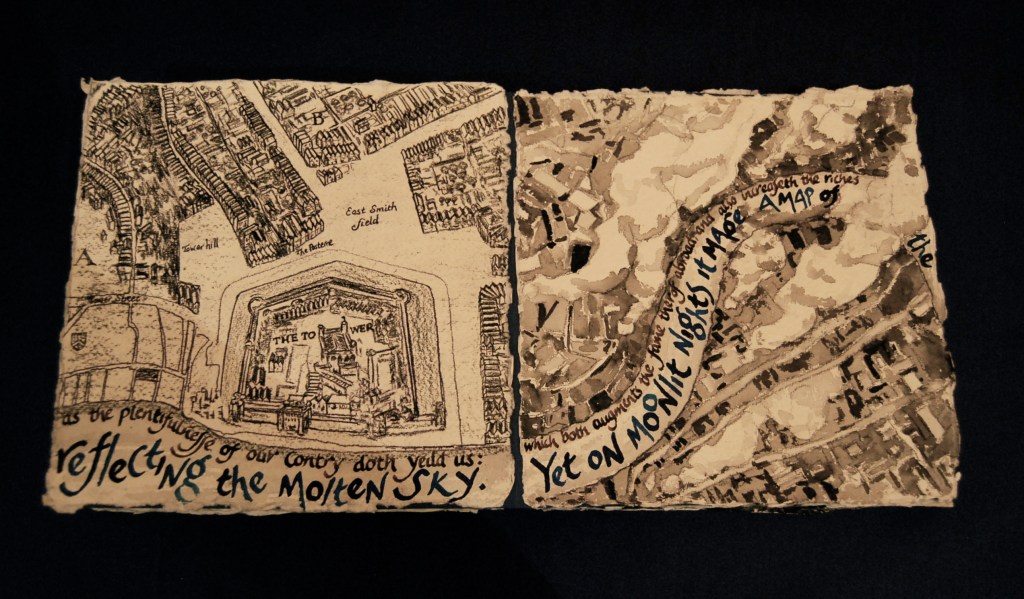 B
East Smith
field
Tower hill
The Posterne
A
Tower Street
THE TOWER
as the plentifulnesse of our Contry doth yeild us:
reflecting the Molten SKY.
which both augments the fame
and also increaseth the riches
Yet ON MOONlit Nights it MADE A MAP of
the